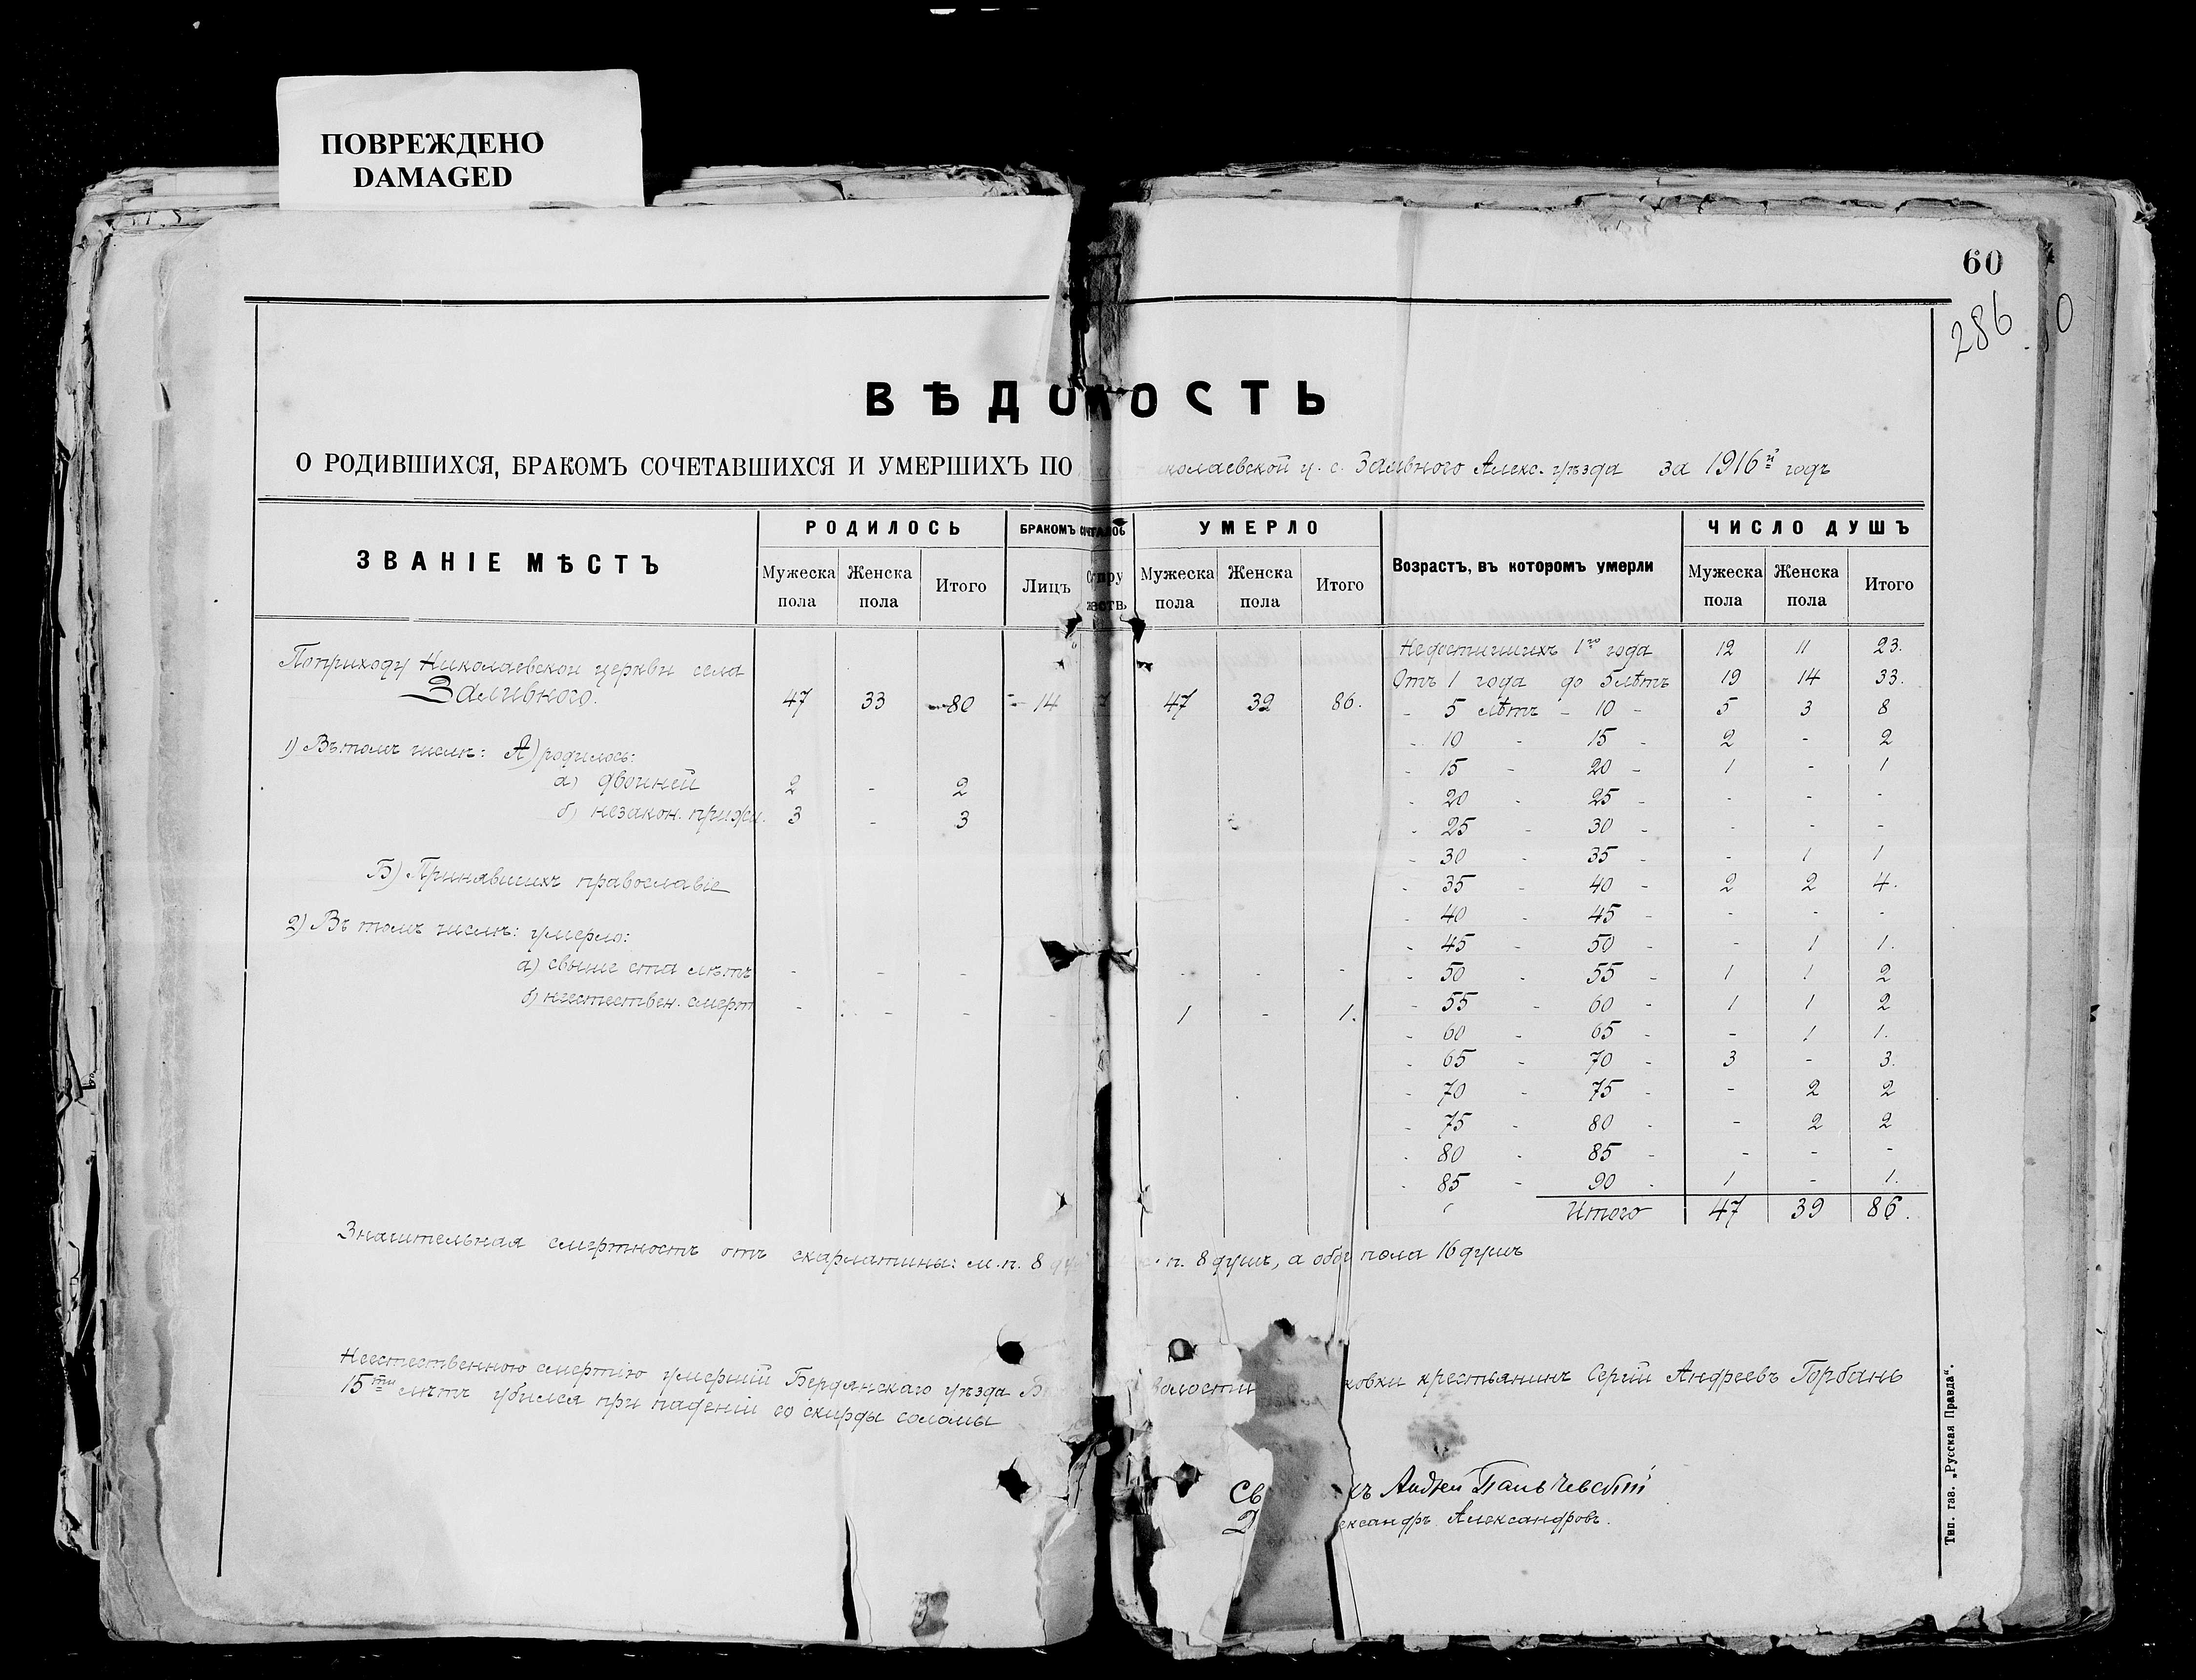 ПОВРЕЖДЕНО
DAMAGED
60
286
0
ВѢДОМОСТЬ
О РОДИВШИХСЯ, БРАКОМЪ СОЧЕТАВШИХСЯ И УМЕРШИХЪ ПО колаевской ц. с. Заливного Алекс. уѣзда за 1916й годъ
ЗВАНІЕ МѢСТЪ РОДИЛОСЬ БРАКОМЪ СОЧЕТАЛОСЬ УМЕРЛО Возрастъ, въ которомъ умерли ЧИСЛО ДУШЪ
Мужеска пола Женска пола Итого Лицъ Супружествъ Мужеска пола Женска пола Итого Мужеска пола Женска пола Итого
Недостигшихъ 1го года 12 11 23.
По приходу Николаевской церкви села
Отъ 1 года до 5 лѣтъ 19 14 33.
Заливного. 47 33 80 14 7 47 39 86.
- 5 лѣтъ - 10 - 5 3 8
1) Въ томъ числѣ: А) родилось:
- 10 - 15 - 2 - 2
- 15 - 20 - 1 - 1
а) двойней 2 - 2
- 20 - 25 - - - -
б) незакон. прижи. 3 - 3
- 25 - 30 - - - -
- 30 - 35 - - 1 1
Б) Принявшихъ православіе
- 35 - 40 - 2 2 4.
- 40 - 45 - - - -
2) Въ томъ числѣ: умерло:
- 45 - 50 - - 1 1.
а) свыше ста лѣтъ - - - - - -
- 50 - 55 - 1 1 2
б) неестествен. смерт - - - - 1 - 1.
- 55 - 60 - 1 1 2
- 60 - 65 - - 1 1.
- 65 - 70 - 3 - 3.
- 70 - 75 - - 2 2
- 75 - 80 - - 2 2
- 80 - 85 - - - -
- 85 - 90 - 1 - 1.
Итого 47 39 86.
Значительная смертность отъ скарлатины: м.п. 8 п. 8 душъ, а обоего пола 16 душъ
Неестественною смертію умершій Бердянскаго уѣзда волости ковки крестьянинъ Сергій Андреевъ Горбань
15ти лѣтъ убился при паденіи со скирды соломы
Св къ Андрей Паньчевскій
ександръ Александровъ.
Тип. газ. „Русская Правда“.